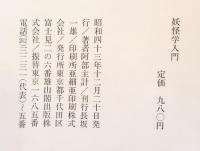 妖怪学入門
定価 九八〇円
昭和四十三年十二月二十日発
行/著者阿部主計/刊行長坂
一雄/印刷所亜細亜印刷株式
会社/発行所東京都千代田区
富士見二の六番雄山閣出版株
式会社/振替東京一六八五番
電話二六二三二三一(代表)~五番